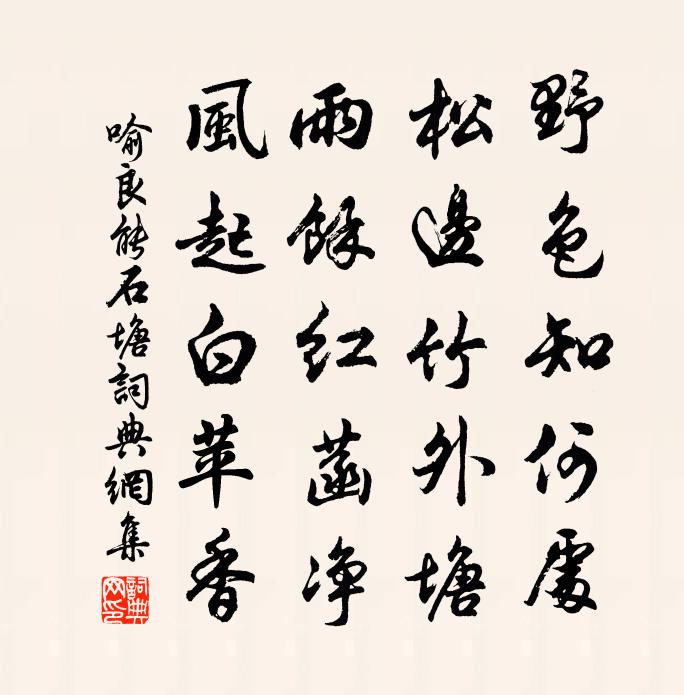 野色知何處
松邊竹外塘
雨餘紅菡净
風起白苹香
喻良能石塘詞典網集
詞典网印